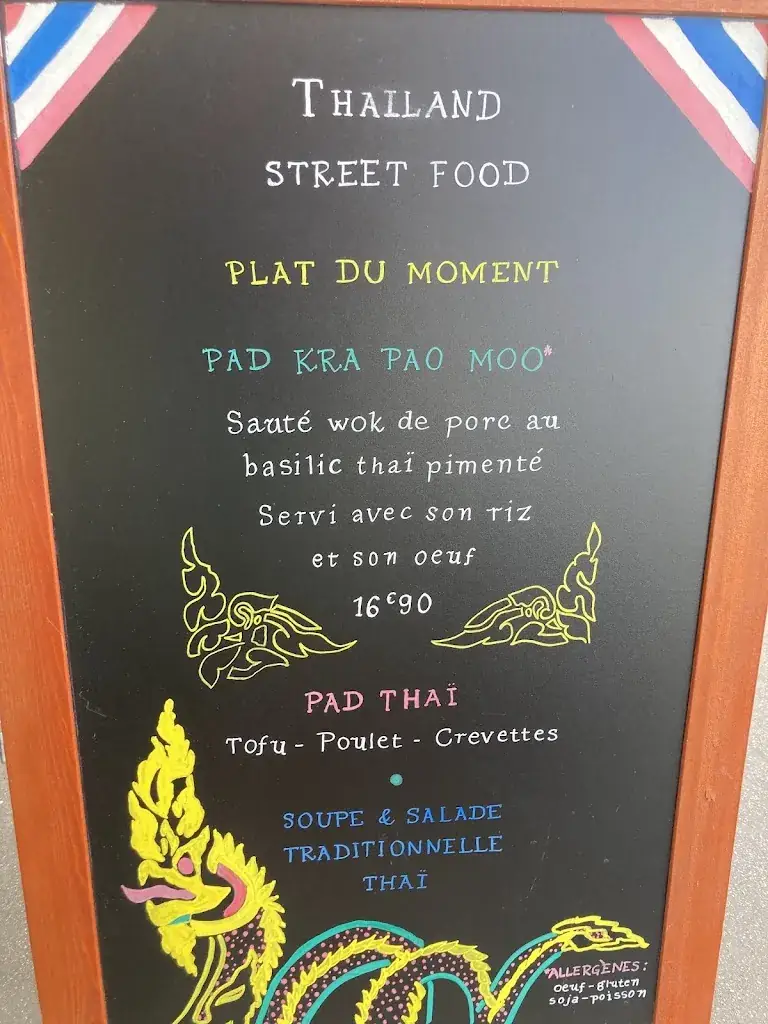 THAILAND
STREET FOOD
PLAT DU MOMENT
PAD KRA PAO MOO*
Sauté wok de porc au
basilic thaï pimenté
Servi avec son riz
et son oeuf
16€90
PAD THAÏ
Tofu - Poulet - Crevettes
SOUPE & SALADE
TRADITIONNELLE
THAÏ
*ALLERGÈNES:
oeuf-gluten
soja-poisson